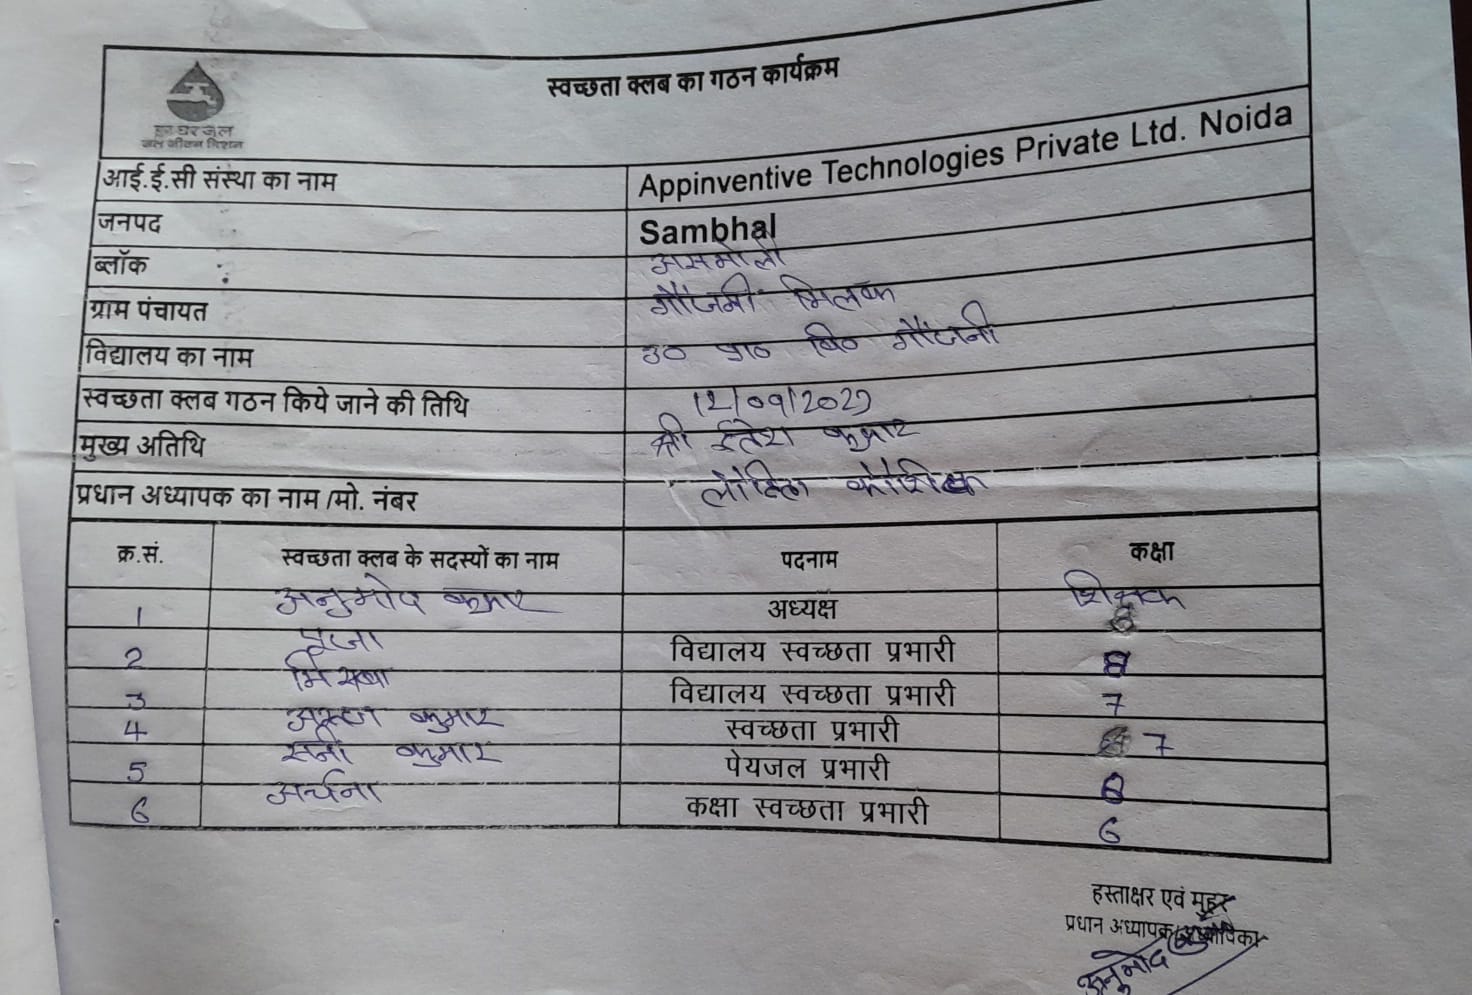 स्वच्छता क्लब का गठन कार्यक्रम
हर घर जल
जल जीवन मिशन
आई.ई.सी संस्था का नाम Appinventive Technologies Private Ltd. Noida
जनपद Sambhal
ब्लॉक असमोली
ग्राम पंचायत मिलक
विद्यालय का नाम उ० प्रा० वि०
स्वच्छता क्लब गठन किये जाने की तिथि 12/09/2023
मुख्य अतिथि श्री कुमार
प्रधान अध्यापक का नाम /मो. नंबर कौशिक
क्र.सं. स्वच्छता क्लब के सदस्यों का नाम पदनाम कक्षा
1 अनुमोद कुमार अध्यक्ष शिक्षक
2 पूजा विद्यालय स्वच्छता प्रभारी 8
3 मिस्बा विद्यालय स्वच्छता प्रभारी 7
4 कुमार स्वच्छता प्रभारी 7
5 सनी कुमार पेयजल प्रभारी 8
6 अर्चना कक्षा स्वच्छता प्रभारी 6
हस्ताक्षर एवं मुहर
प्रधान अध्यापक/अध्यापिका
अनुमोद